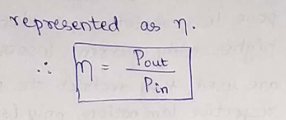 represented as η.
∴ η = Pout / Pin